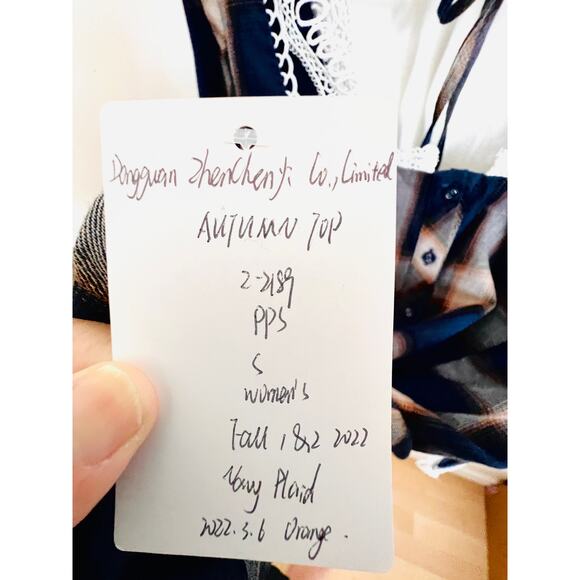 Dongguan Zhenchenyi Co., Limited
AUTUMN TOP
2-2189
PPS
S
women's
Fall 1 & 2 2022
Navy Plaid
2022.5.6 Orange.